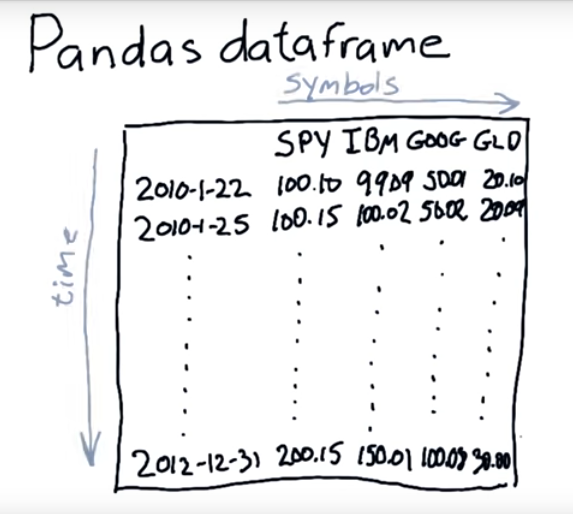 Pandas dataframe
symbols
SPY IBM GOOG GLD
2010-1-22 100.10 99.09 50.01 20.10
2010-1-25 100.15 100.02 50.02 20.09
time
2012-12-31 200.15 150.01 100.09 30.00